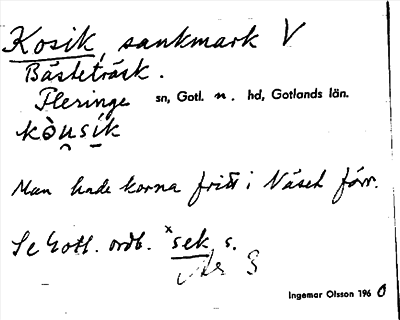 Kosik, sankmark V
Bästeträsk.
Fleringe sn, Gotl. n. hd, Gotlands län.
kòu̯sik
Man hade korna fritt i Näset förr.
Se Gotl. ordb. ˣsek, s.
Ingemar Olsson 1960